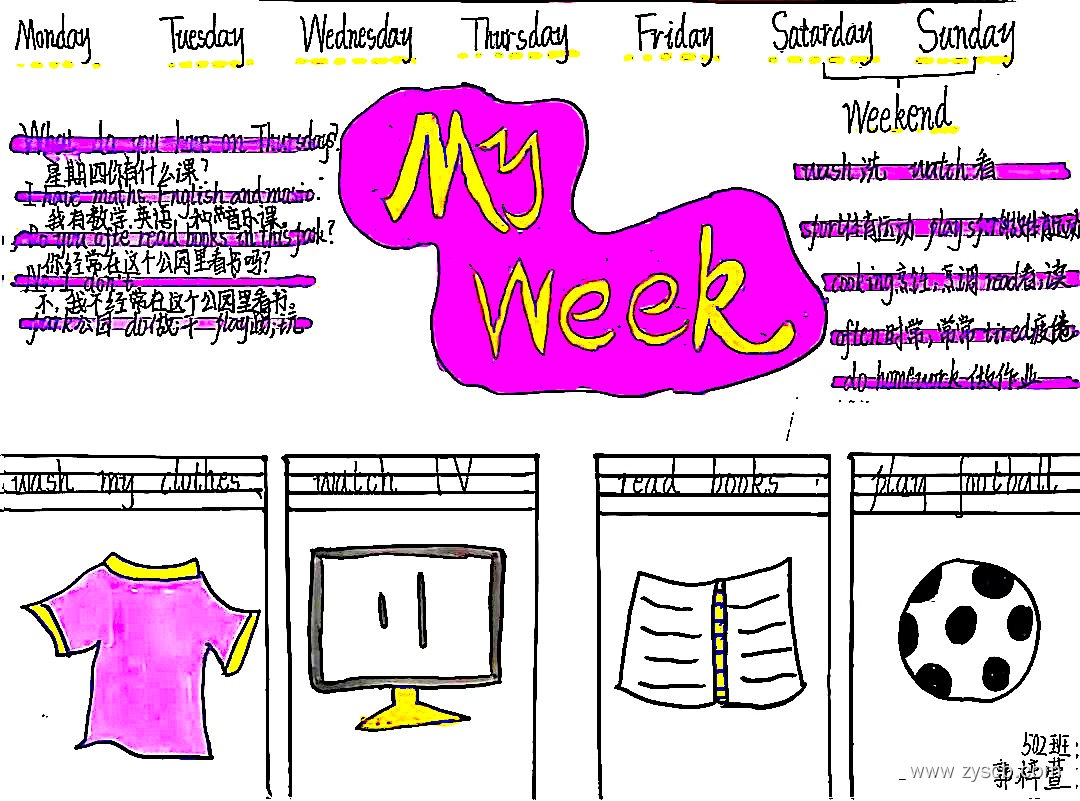 Monday Tuesday Wednesday Thursday Friday Satarday Sunday
Weekend
My
Week
What do you have on Thursdays?
星期四你有什么课?
I have maths, English and music.
我有数学,英语,和音乐课。
Do you ofte read books in this park?
你经常在这个公园里看书吗?
No, I don't
不,我不经常在这个公园里看书。
park公园 do做;干 play
wash洗 watch看
sport体育运动 play
cooking烹饪,烹调 read看;读
often时常,常常 tired疲倦
do homework 做作业
wash my clothes
watch TV
read books
play football
502班:
郭梓萱
www.zys